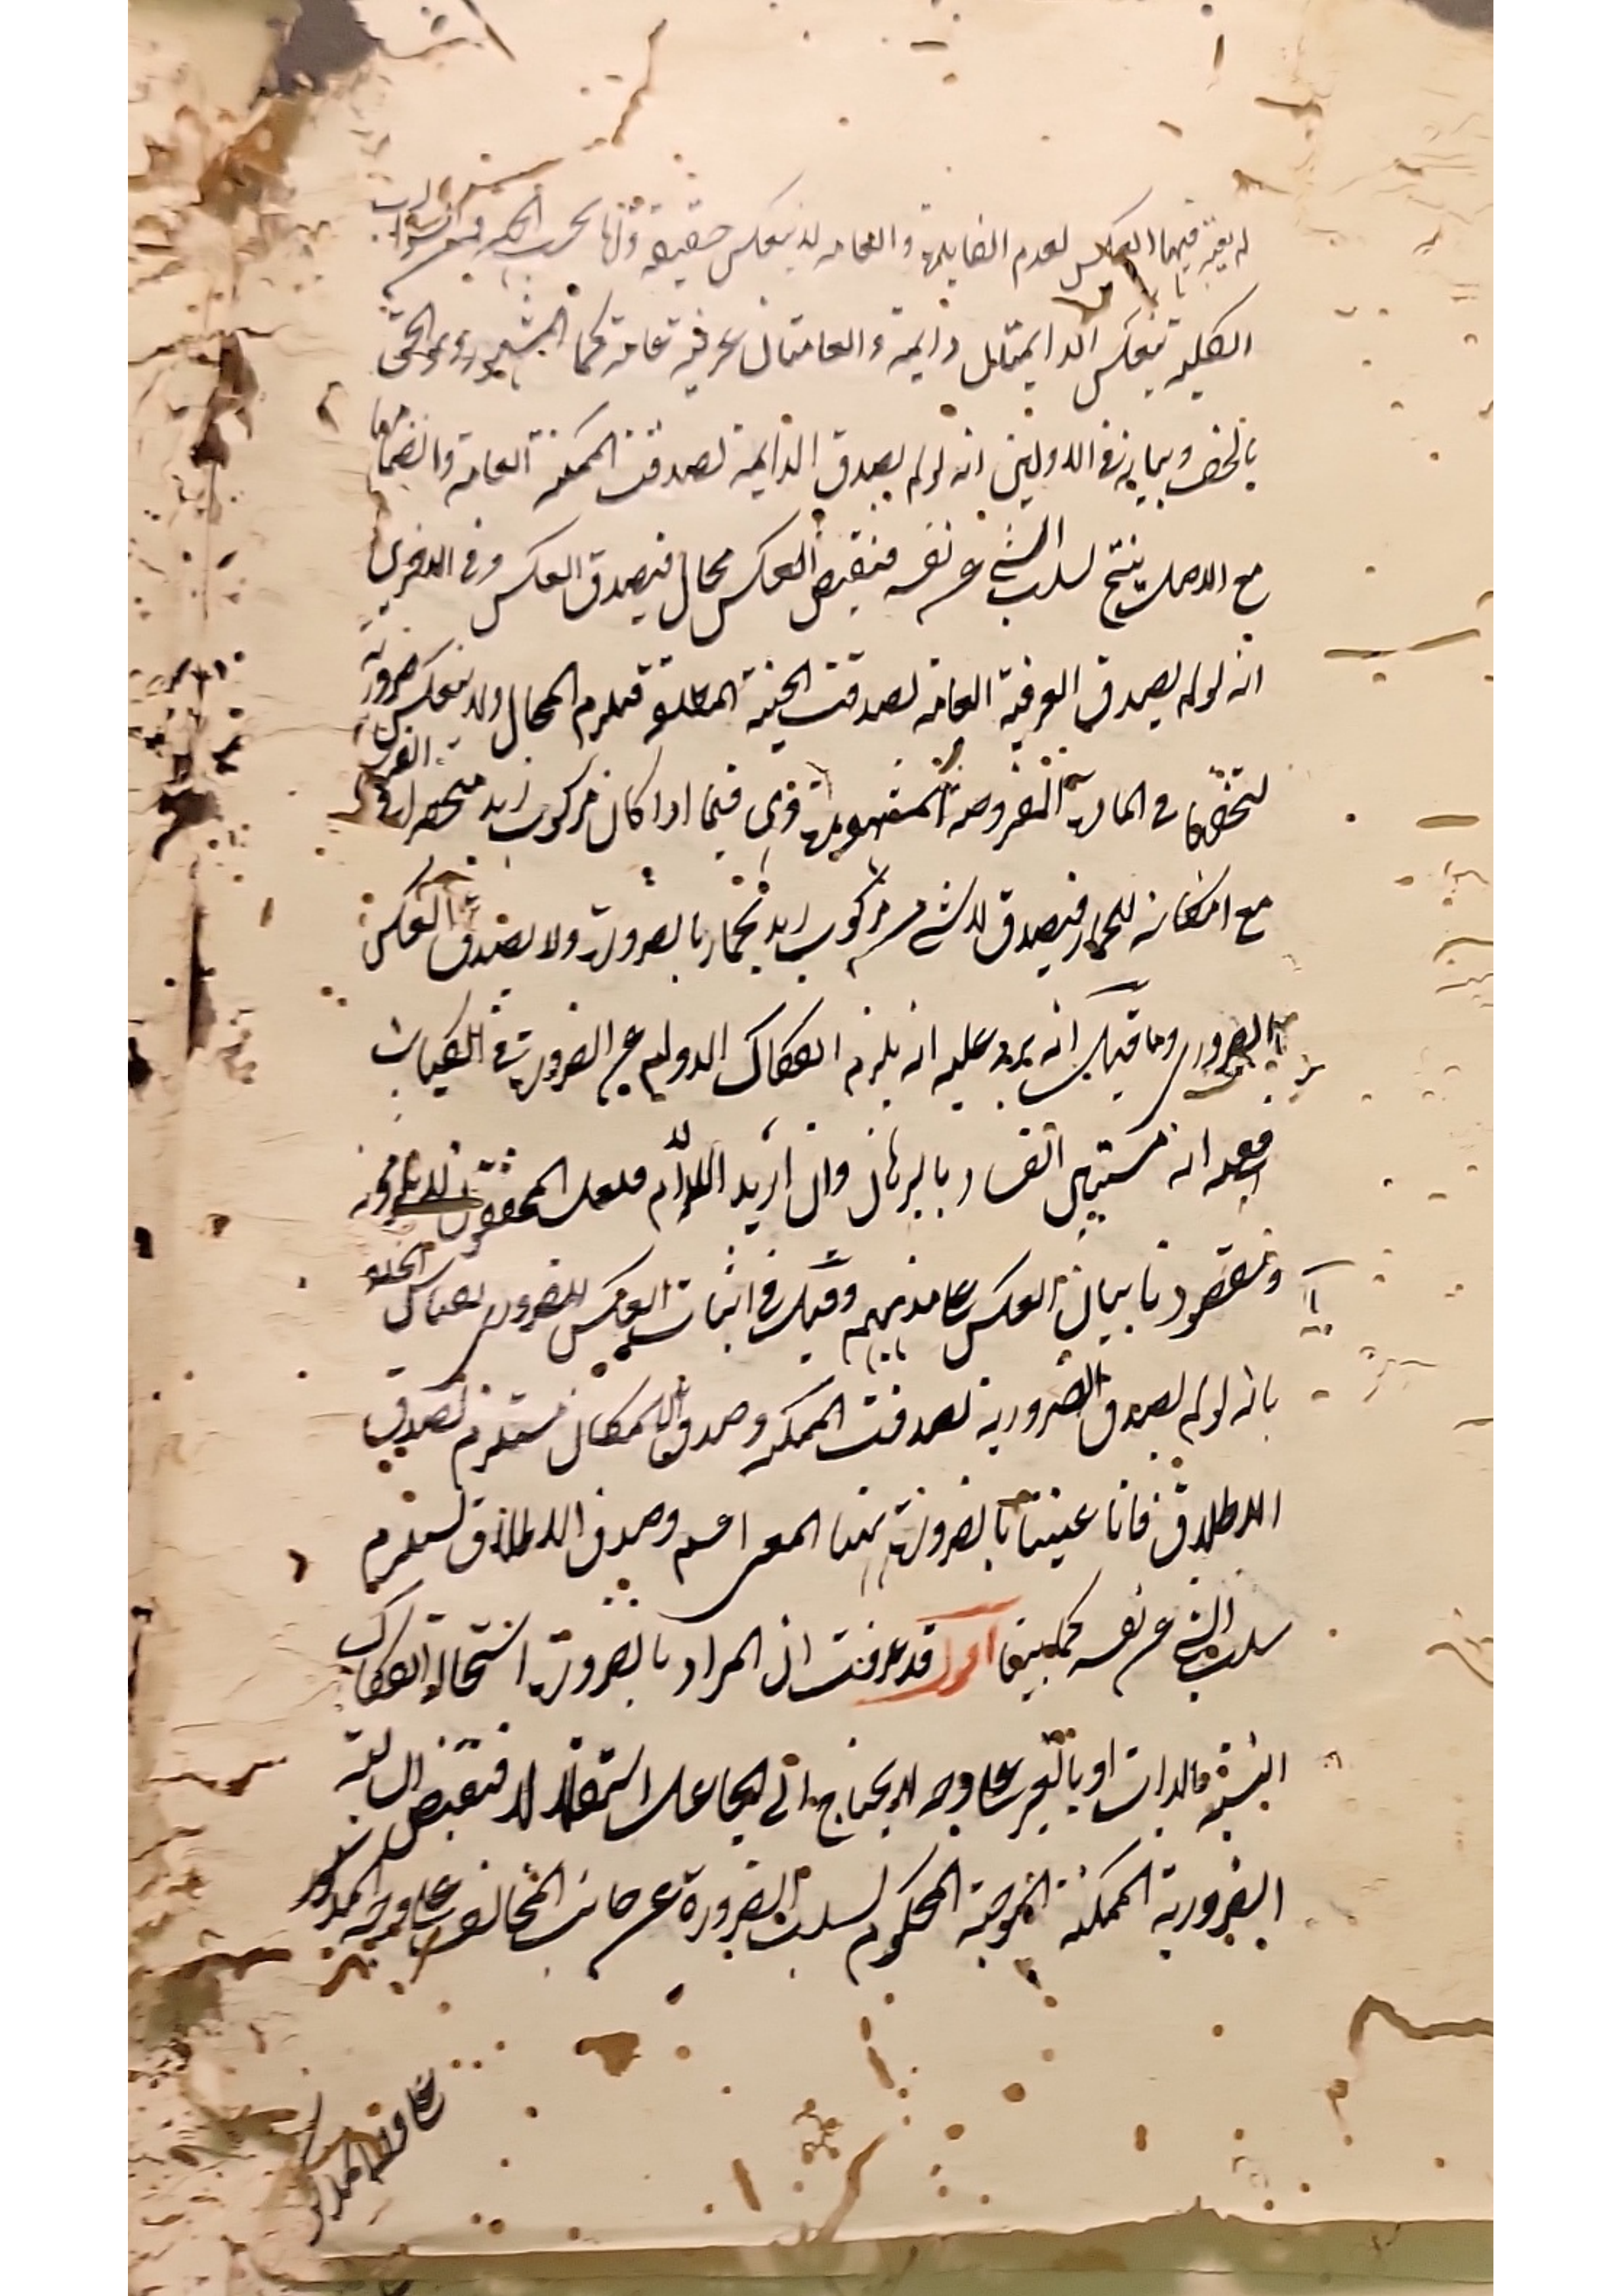 لم يعتبر فيهما العكس لعدم الضابطة والعامة لا ينعكس حقيقة
الكلية تنعكس الدايمتان دايمة والعامتان عرفية عامة كما المشهور وهو الحق
بالخلف وبيانه في الاوليين انه لو لم يصدق الدايمة لصدقت الممكنة العامة وانضمامها
مع الاصل ينتج لسلب الشي عن نفسه فنقيض العكس محال فيصدق العكس وفي الاخريين
انه لو لم يصدق العرفية العامة لصدقت الحينية المطلقة فيلزم المحال ولا ينعكس ضرورية
لتخلفها في المادة المفروضة المشهورة وهي فيما اذا كان مركوب زيد منحصرا في الفرس
مع امكانه للحمار فيصدق لا شي من مركوب زيد بحمار بالضرورة ولا يصدق العكس
الضروري وما قيل انه يرد عليه انه يلزم انفكاك الدوام عن الضرورة في الكليات
فبعد انه مستبين الفساد بالبرهان وان اريد اللازم فلعل المحققون
ومقصودنا بيان العكس على مذهبهم وقيل في اثبات العكس للضرورة بقياس الخلف
بانه لو لم يصدق الضرورية لصدقت الممكنة وصدق الامكان مستلزم لصدق
الاطلاق فانا عنينا بالضرورة هنا المعنى الاعم وصدق الاطلاق يستلزم
سلب الشي عن نفسه كما بينا اقول قد عرفت ان المراد بالضرورة استحالة انفكاك
النسبة بالذات او بالغير على وجه لا يحتاج الى الجاعل استقلالا فنقيض السالبة
الضرورية الممكنة الموجبة المحكوم لسلب الضرورة عن جانب المخالف على وجه المذكور
على وجه المذكور